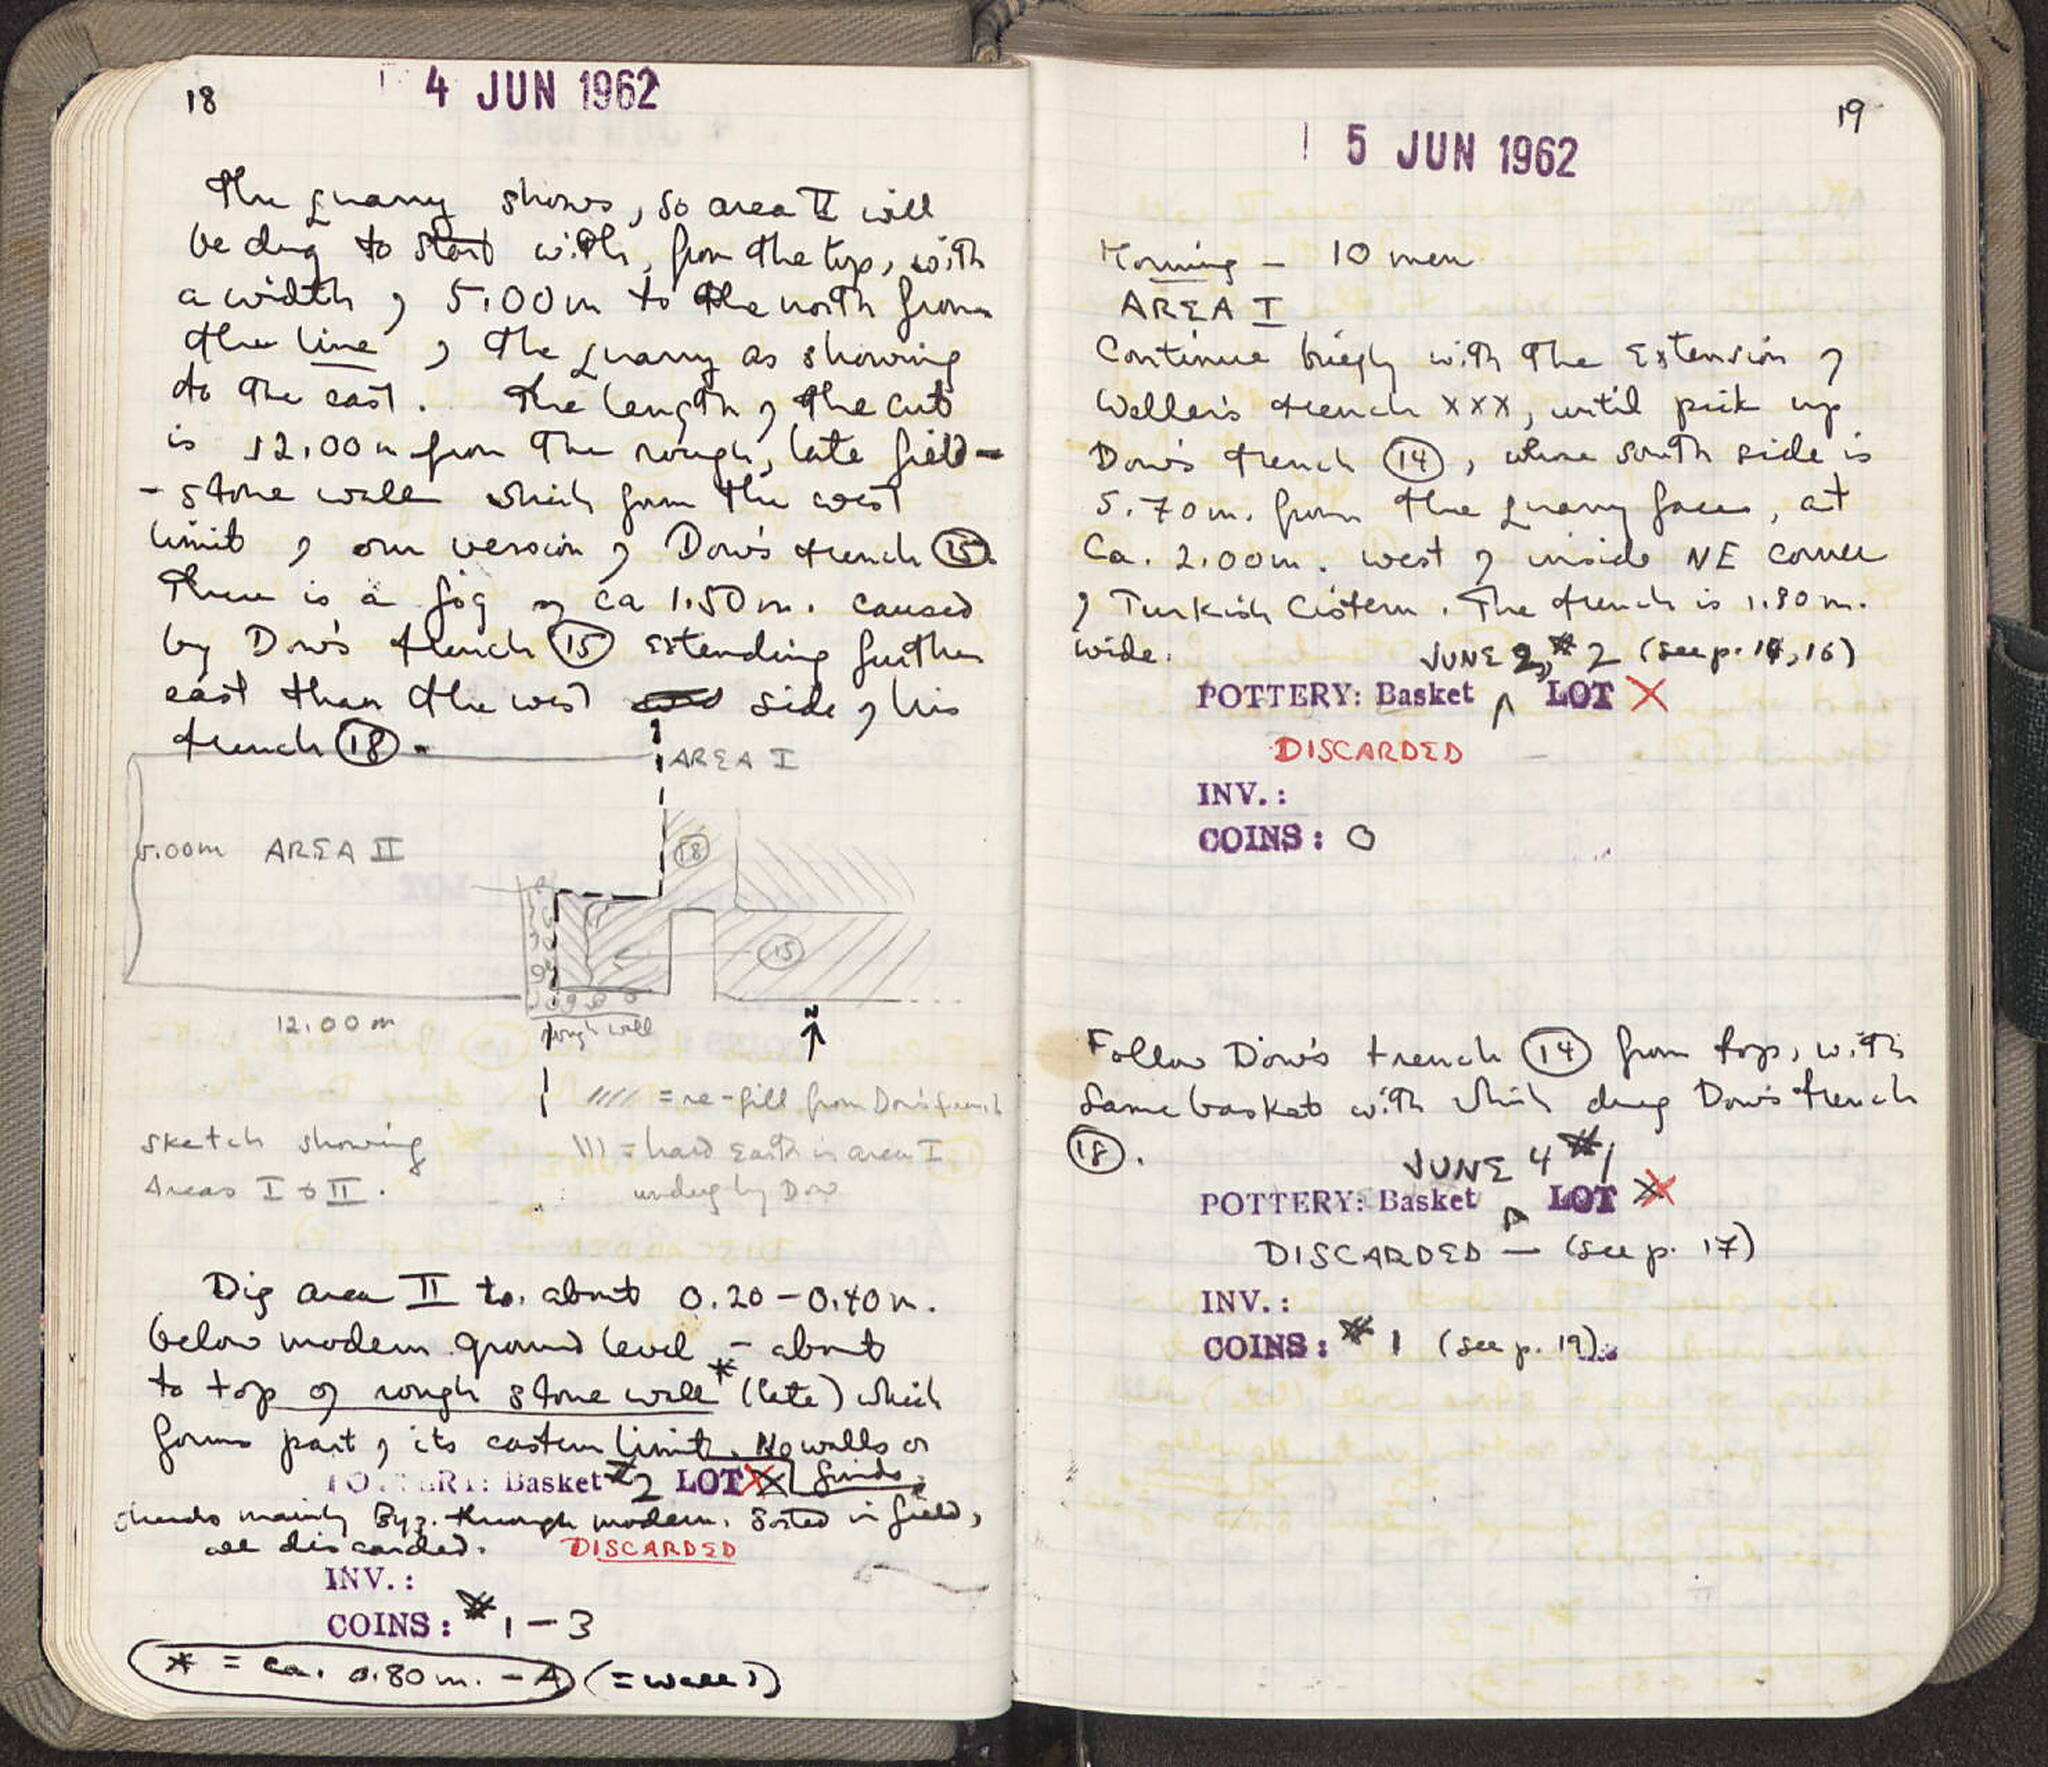 18
4 JUN 1962
The quarry shows, so area II will
be dug to start with, from the top, with
a width of 5.00m to the north from
the line of the quarry as showing
to the east. The length of the cut
is 12.00m from the rough, late field-
- stone wall which form the west
limit of our version of Dow's trench (15).
There is a jog of ca 1.50m. caused
by Dow's trench (15) extending further
east than the west side of his
trench (18).
AREA I
5.00m AREA II
(18)
(15)
12.00m
rough wall
N
//// = re-fill from Dow's trench
\\\ = hard earth in area I
undug by Dow
Sketch showing
Areas I & II.
Dig area II to about 0.20-0.40m.
below modern ground level - about
to top of rough stone wall* (late) which
forms part of its eastern limit. No walls or
finds.
POTTERY: Basket #2 LOT X
sherds mainly Byz. through modern. Sorted in field,
all discarded. DISCARDED
INV.:
COINS: #1-3
* = ca. 0.80m. - A (= wall 1)
19
5 JUN 1962
Morning - 10 men
AREA I
Continue briefly with the extension of
Weller's trench XXX, until pick up
Dow's trench (14), whose south side is
5.70m. from the quarry face, at
ca. 2.00m. west of inside NE corner
of Turkish Cistern. The trench is 1.80m.
wide.
JUNE 2, #2 (see p. 14, 16)
POTTERY: Basket ^ LOT X
DISCARDED
INV.:
COINS: 0
Follow Dow's trench (14) from top, with
same basket with which dug Dow's trench
(18).
JUNE 4 #1
POTTERY: Basket ^ LOT X
DISCARDED - (see p. 17)
INV.:
COINS: #1 (see p. 19).